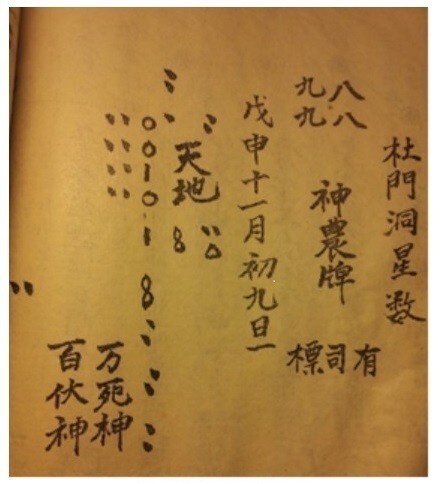 杜門洞星数
八八
九九
神農牌
有司標
戊申十一月初九日一
天地
万死神
百伏神